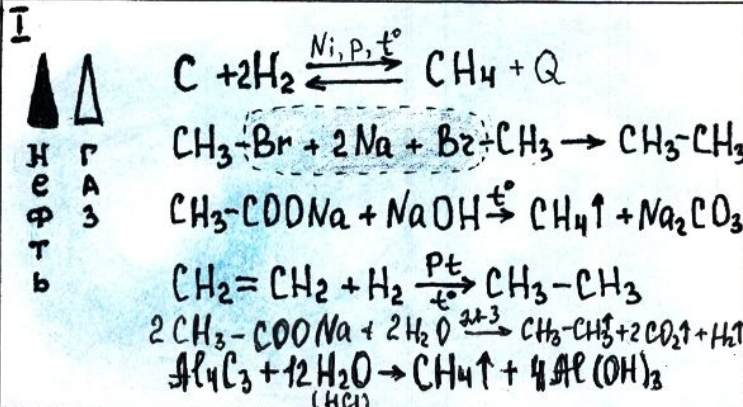 I
НЕФТЬ
ГАЗ
C + 2H₂ ⇌ CH₄ + Q
Ni, p, t°
CH₃-Br + 2Na + Br-CH₃ → CH₃-CH₃
CH₃-COONa + NaOH →(t°) CH₄↑ + Na₂CO₃
CH₂=CH₂ + H₂ →(Pt, t°) CH₃-CH₃
2CH₃-COONa + 2H₂O →(эл-з) CH₃-CH₃↑ + 2CO₂↑ + H₂↑
Al₄C₃ + 12H₂O → CH₄↑ + 4Al(OH)₃
(HCl)